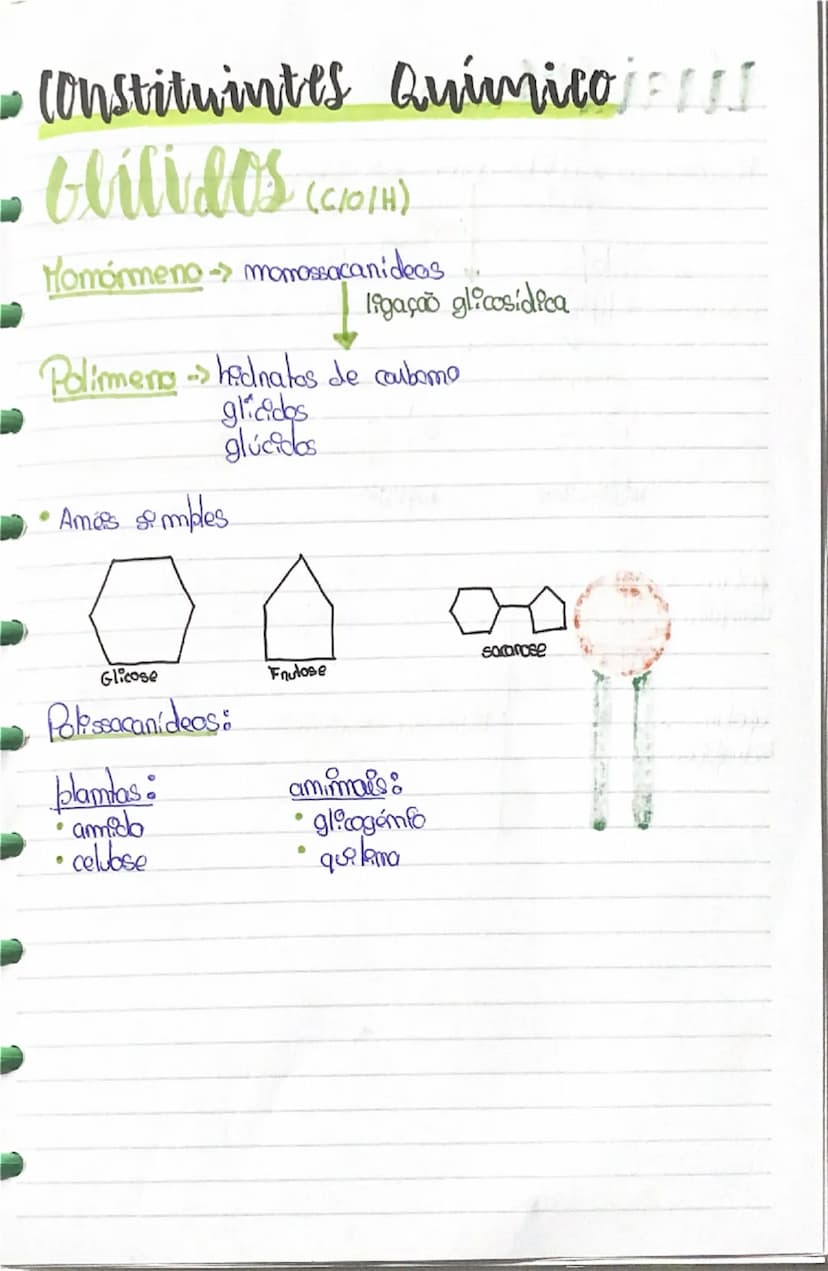 Constituintes Químico
Glícidos (C/O/H)
Monómero -> monossacarídeos
ligação glicosídica
Polímero -> hidratos de carbono
glícidos
glúcidos
• Anéis simples
Glicose
Frutose
sacarose
Polissacarídeos:
plantas:
animais:
• amido
• glicogénio
• celulose
• quitina